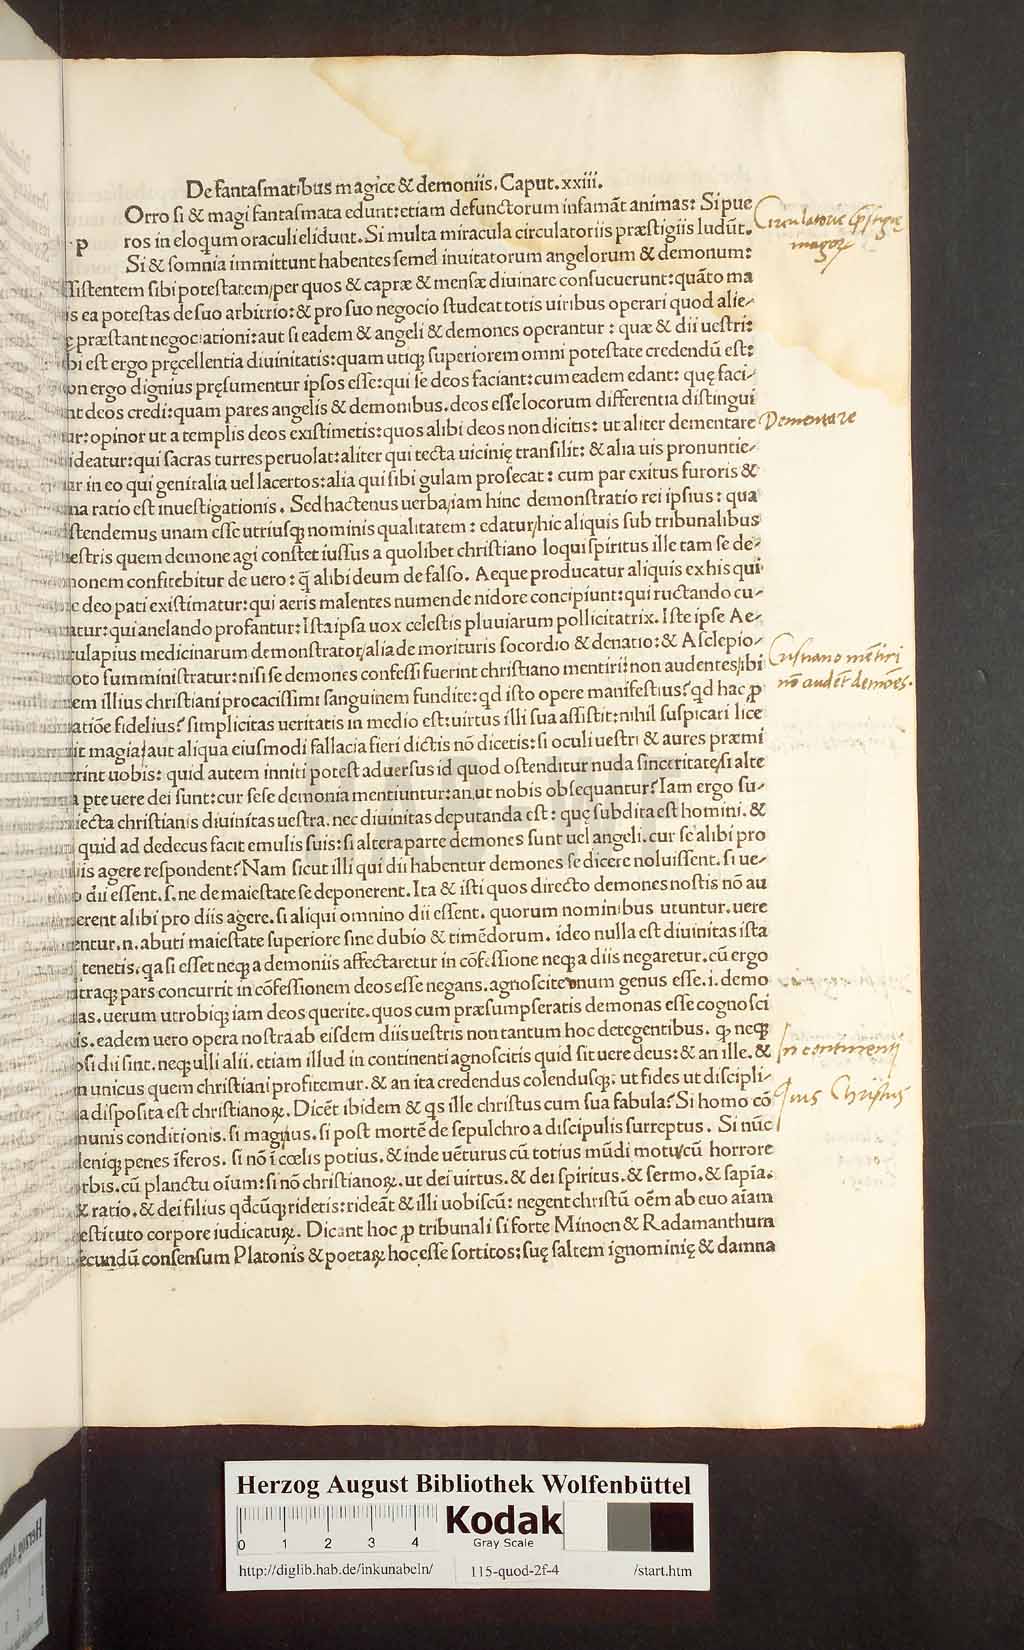 De fantaſmatibus magice & demoniis. Caput. xxiii.
p Orro ſi & magi fantaſmata edunt: etiam defunctorum infamāt animas: Si pue
ros in eloqum oraculi elidunt. Si multa miracula circulatoriis præſtigiis ludūt.
Si & ſomnia immittunt habentes ſemel inuitatorum angelorum & demonum:
ſſiſtentem ſibi poteſtatem/per quos & capræ & menſæ diuinare conſueuerunt: quāto ma
is ea poteſtas de ſuo arbitrio: & pro ſuo negocio ſtudeat totis uiribus operari quod alie-
ę præſtant negociationi: aut ſi eadem & angeli & demones operantur: quæ & dii ueſtri:
bi eſt ergo pręcellentia diuinitatis: quam utiqꝫ ſuperiorem omni poteſtate credendū eſt:
on ergo dignius pręſumentur ipſos eſſe: qui ſe deos faciant: cum eadem edant: quę faci-
nt deos credi: quam pares angelis & demonibus. deos eſſe locorum differentia diſtingui
ur: opinor ut a templis deos exiſtimetis: quos alibi deos non dicitis: ut aliter dementare
ideatur: qui ſacras turres peruolat: aliter qui tecta uicinię tranſilit: & alia uis pronuntie-
ur in eo qui genitalia uel lacertos: alia qui ſibi gulam proſecat: cum par exitus furoris &
na ratio eſt inueſtigationis. Sed hactenus uerba/iam hinc demonſtratio rei ipſius: qua
ſtendemus unam eſſe utriuſqꝫ nominis qualitatem: edatur/hic aliquis ſub tribunalibus
eſtris quem demone agi conſtet iuſſus a quolibet chriſtiano loqui ſpiritus ille tam ſe de-
monem confitebitur de uero: q̄ alibi deum de falſo. Aeque producatur aliquis ex his qui
e deo pati exiſtimatur: qui aeris malentes numen de nidore concipiunt: qui ructando cu-
atur: qui anelando profantur: Iſta ipſa uox celeſtis pluuiarum pollicitatrix. Iſte ipſe Ae-
culapius medicinarum demonſtrator/alia de morituris ſocordio & denatio: & Aſclepio-
oto ſumminiſtratur: niſi ſe demones confeſſi fuerint chriſtiano mentiri: non audentes/ibi
em illius chriſtiani procaciſſimi ſanguinem fundite: qd iſto opere manifeſtius? qd hac ꝓ
atiōe fidelius? ſimplicitas ueritatis in medio eſt: uirtus illi ſua aſſiſtit: nihil ſuſpicari lice
it magia/aut aliqua eiuſmodi fallacia fieri dictis nō dicetis: ſi oculi ueſtri & aures præmi
erint uobis: quid autem inniti poteſt aduerſus id quod oſtenditur nuda ſinceritate/ſi alte
a pte uere dei ſunt: cur ſeſe demonia mentiuntur: an ut nobis obſequantur? Iam ergo ſu-
iecta chriſtianis diuinitas ueſtra. nec diuinitas deputanda eſt: quę ſubdita eſt homini. &
quid ad dedecus facit emulis ſuis: ſi altera parte demones ſunt uel angeli. cur ſe alibi pro
iis agere reſpondent? Nam ſicut illi qui dii habentur demones ſe dicere noluiſſent. ſi ue-
o dii eſſent. ſ. ne de maieſtate ſe deponerent. Ita & iſti quos directo demones noſtis nō au
erent alibi pro diis agere. ſi aliqui omnino dii eſſent. quorum nominibus utuntur. uere
entur. n. abuti maieſtate ſuperiore ſine dubio & timēdorum. ideo nulla eſt diuinitas iſta
tenetis. qa ſi eſſet neqꝫ a demoniis affectaretur in cōfeſſione neqꝫ a diis negaretur. cū ergo
traqꝫ pars concurrit in cōfeſſionem deos eſſe negans. agnoſcite unum genus eſſe. i. demo
as. uerum utrobiqꝫ iam deos querite. quos cum præſumpſeratis demonas eſſe cognoſci
is. eadem uero opera noſtra ab eiſdem diis ueſtris non tantum hoc detegentibus. qꝫ neqꝫ
pſi dii ſint. neqꝫ ulli alii. etiam illud in continenti agnoſcitis quid ſit uere deus: & an ille. &
n unicus quem chriſtiani profitemur. & an ita credendus colenduſqꝫ. ut fides ut diſcipli-
a diſpoſita eſt chriſtianoꝝ. Dicēt ibidem & qs ille chriſtus cum ſua fabula? Si homo cō
munis conditionis. ſi magnus. ſi poſt mortē de ſepulchro a diſcipulis ſurreptus. Si nūc
leniqꝫ penes īferos. ſi nō ī cœlis potius. & inde uēturus cū totius mūdi motu/cū horrore
rbis. cū planctu oīum: ſi nō chriſtianoꝝ. ut dei uirtus. & dei ſpiritus. & ſermo. & ſapīa.
& ratio. & dei filius qdcūqꝫ rideris: rideāt & illi uobiſcū: negent chriſtū oēm ab euo aīam
eſtituto corpore iudicatuꝝ. Dicant hoc ꝓ tribunali ſi forte Minoen & Radamanthum
ecundū conſenſum Platonis & poetaꝝ hoc eſſe ſortitos: ſuę ſaltem ignominię & damna
Dementare
Cristiano mētiri
nō audēt demōes.
In continenti
Quis Christus
HAB
Herzog August Bibliothek Wolfenbüttel
0 1 2 3 4
Kodak
Gray Scale
http://diglib.hab.de/inkunabeln/ 115-quod-2f-4 /start.htm